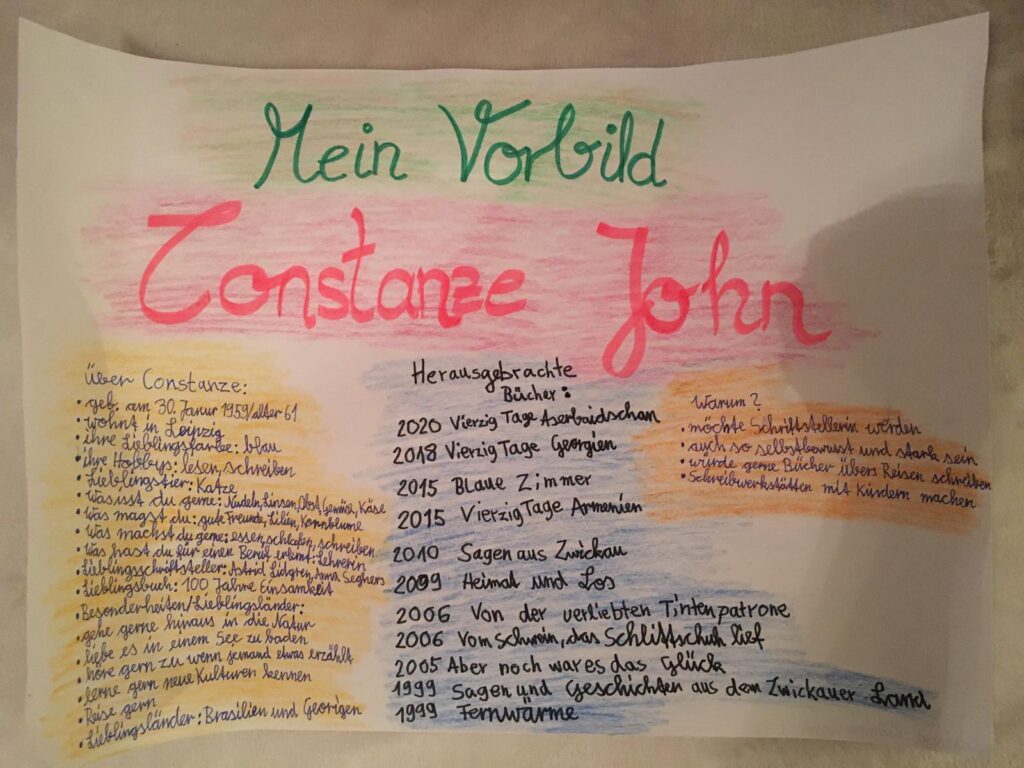 Mein Vorbild
Constanze John
über Constanze:
• geb. am 30. Janur 1959/alter 61
• wohnt in Leipzig
• ihre Lieblingsfarbe: blau
• ihre Hobbys: lesen, schreiben
• Lieblingstier: Katze
• Was isst du gerne: Nudeln, Linsen, Obst, Gemüse, Käse
• was magst du: gute Freunde, Lilien, Kornblume
• was machst du gerne: essen, schlafen, schreiben
• was hast du für einen Beruf erlernt: Lehrerin
• Lieblingsschriftsteller: Astrid Lidgren, Anna Seghers
• Lieblingsbuch: 100 Jahre Einsamkeit
Besonderheiten/Lieblingsländer:
• gehe gerne hinaus in die Natur
• liebe es in einem See zu baden
• höre gern zu wenn jemand etwas erzählt
• lerne gern neue Kulturen kennen
• Reise gern
• Lieblingsländer: Brasilien und Georigen
Herausgebrachte
Bücher:
2020 Vierzig Tage Aserbaidschan
2018 Vierzig Tage Georgien
2015 Blaue Zimmer
2015 Vierzig Tage Armenien
2010 Sagen aus Zwickau
2009 Heimat und Los
2006 Von der verliebten Tintenpatrone
2006 Vom Schwein, das Schlittschuh lief
2005 Aber noch war es das Glück
1999 Sagen und Geschichten aus dem Zwickauer Land
1999 Fernwärme
Warum?
• möchte Schriftstellerin werden
• auch so selbstbewust und stark sein
• würde gerne Bücher übers Reisen schreiben
• Schreibwerkstätten mit Kindern machen